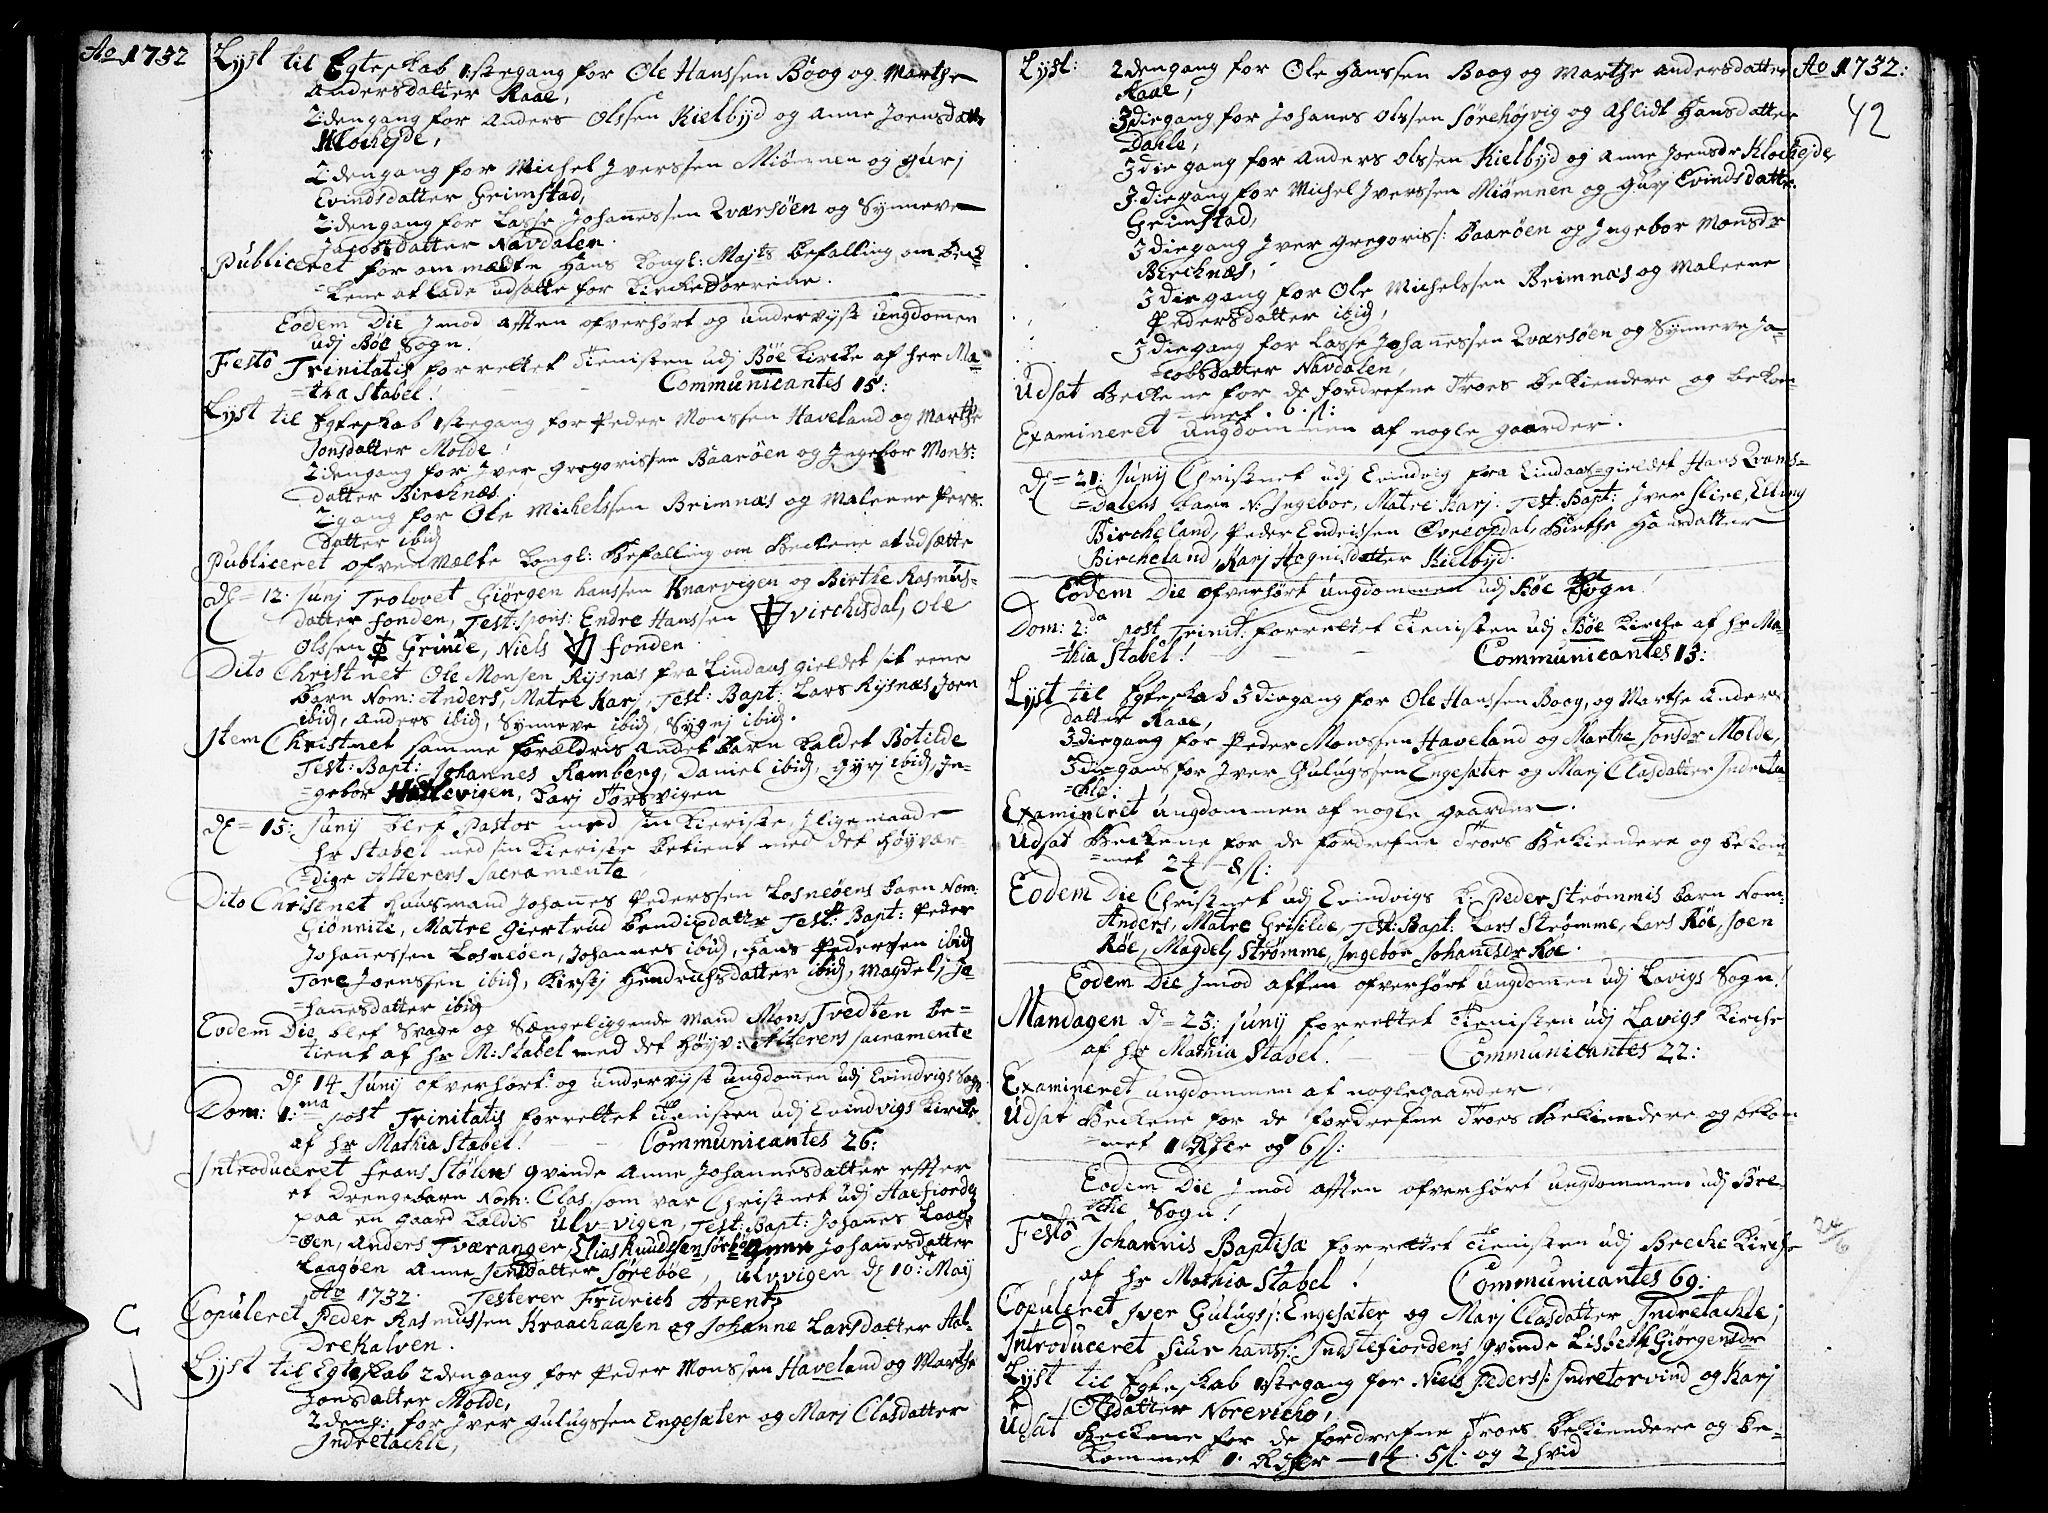 Ao 1732
Lyst til Egteskab 1stegang for Ole Hanssen Böog og Marthe
Andersdatter Raae,
2:dengang for Anders Olssen Kielbyd og Anne Joensdattr
Klochejde,
2:dengang for Michel Iverssen Miömnen og Gurj
Evindsdatter Grimstad,
2:dengang for Lasse Johannessen Qværsöen og Synneve
Jacobsdatter Navdalen.
Publiceret for ommældte Hans Kongl: Majts befalling om Bec-
kene at lade udsætte for Kirkedörrene.
Eodem Die Jmod Afften ofverhört og undervyst ungdomen
udj Böe Sogn!
Festo Trinitatis forrettet Tienisten udj Böe Kircke af her Ma-
=thia Stabel! Communicantes 15:
Lyst til Egteskab 1stegang for Peder Monssen Haveland og Marthe
Jonsdatter Molde!
2:dengang for Iver Gregorissen Baaröen og Ingebor Mons:
datter Bircknæs.
2:gang for Ole Michelssen Brimnæs og Maleene Pers:
datter ibid
Publiceret ofvermelte Kongl: Befalling om Beckene at udsætte
d= 12. Junj Trolovet Giörgen Hanssen Knarvigen og Birthe Rasmus-
datter Fonden, Test: Spons: Endre Hanssen Virchisdal, Ole
Olssen Grinde, Niels Fonden
Dito Christnet Ole Monsen Rysnæs fra Lindaas gieldet sit eene
Barn Nom: Anders, Matre Karj, Test: Bapt: Lars Rysnæs, Joen
ibid, Anders ibid, Synneve ibid, Sygnj ibid.
Item Christnet samme Forældris andet Barn kaldet Botilde
Test: Bapt: Johannes Ramberg, Daniel ibid, Gyrj ibid, In-
=gebor Hatlevigen, Karj Torsvigen
d= 15: Junij blef Pastor med sin Kieriste, Jligemaade
hr Stabel med sin Kieriste betient med det Höyvær-
=dige Alterens Sacramente,
Dito Christnet Huusmand Johannes Pederssen Losneöens Barn Nom:
Giönrite, Matre Giertrud Bendixdattr Test: Bapt: Peder
Johannessen Losneöen, Johannes ibid, Hans Pederssen ibid
Tore Iverssen ibid, Kirstj Hendrichsdatter ibid, Magdelj Jo-
=hanesdatter ibid
Eodem Die blef Svage og Sængeliggende Mand Mons Tvedten be-
tient af hr M: Stabel med det Höyv: Alterens Sacramente
d 14 Junij ofverhört og undervyst ungdommen udj Evindvigs Sogn
Dom: 1:ma post Trinitatis forrettet Tienisten udj Evindvigs Kircke
af hr Mathia Stabel! Communicantes 26:
Introduceret Frans Stölens qvinde Anne Johannesdatter effter
et Drengebarn Nom: Clas, som var Christnet udj Aaefiorden
paa en gaard kaldis Ulv=vigen, Test: Bapt: Johannes Laag-
=öen, Anders Tværanger, Elias Knudssen Sörböe Johannesdatter
Laagöen Anne Jensdatter Söreböe, Ulvvigen d 10: Maij
Ao 1732. Testerer Fridrich Arentz
Copuleret Peder Rasmussen Kraachaasen og Johanne Larsdatter Aal-
Drekalven.
Lyst til Egteskab 2dengang for Peder Monssen Haveland og Marthe
Jonsdatter Molde,
2deng: for Iver Gulugssen Engesæter og Marj Clasdatter
Indretachle,
Ao 1732:
42
Lyst: 2dengang for Ole Hanssen Baag og Marthe Andersdatter
Raae,
3diegang for Johanes Olssen Sörehöjvig og Ahlidt Hansdatter
Dahle,
3die gang for Anders Olssen Kielbyd og Anne Joensdr Klochejde
3diegang for Michel Iverssen Miömnen og Gurj Evindsdattr:
Grimstad,
3diegang Iver Gregoriss: Baaröen og Ingebor Monsdr
Bircknæs,
3diegang for Ole Michelssen Brimnæs og Maleene
Pedersdatter ibid,
3diegang for Lasse Johannessen Qværsöen og Synneve Ja-
=cobsdatter Navdalen,
Udsat Beckene for de fordrefne Troes Bekiendere og bekom-
=met . 6. sl:
Examineret ungdommen af nogle gaarder.
d= 21: Junij Christnet udj Evindvig fra Lindaas=gieldet Hans Qvams-
=dalens Barn N: Ingebor, Matre Karj. Test: Bapt: Iver Skire, Elling
Bircheland, Peder Endrissen Ovreopdal, Birthe Hansdatter
Bircheland, Karj Hognisdatter Kielbyd.
Eodem Die ofverhört ungdommen udj Böe Sogn!
Dom: 2:da post Trinit: forrettet Tienisten udj Böe Kirche af hr Ma-
=thia Stabel! Communicantes 13:
Lyst til Egteskab 3diegang for Ole Hanssen Boog, og Marthe Anders
datter Raae,
3diegang for Peder Monssen Haveland og Marthe Jonsdr Molde,
3diegang for Iver Gulugssen Engesæter og Marj Clasdatter Indreta-
=chle:
Examineret ungdommen af nogle gaarder.
Udsat Beckene for de fordrefne Troes Bekiendere og bekom-
=met 2 8 sl:
Eodem Die Christnet udj Evindvigs K: Peder Strömmis Barn Nom:
Anders, Matre Grisilde, Test: Bapt: Lars Strömme, Lars Röe, Joen
Röe, Magdelj Strömme, Ingebor Johanesdr Röe.
Eodem Die Jmod Aften ofverhört ungdomen udj Lavigs Sogn!
Mandagen d= 23: Junij forrettet Tienisten udj Lavigs Kirche
af hr Mathia Stabel! Communicantes 22:
Examineret ungdommen af noglegaarder
Udsat Beckene for de fordrefne Troes Bekiendere og bekom-
=met 1 Rdler og 6 sl:
Eodem Die Jmod Afften ofverhört ungdommen udj Bre-
=che Sogn!
Festo Johannis Baptisæ forrettet Tienisten udj Breche Kirche
24/6
af hr Mathia Stabel! Communicantes 69:
Copuleret Iver Gulugss: Engesæter og Marj Clasdatter Indretachle;
Introduceret Siur Hanss: Indstefiordens qvinde Lisbeth Giörgensdr
Lyst til Egteskab 1stegang for Niels Pederss: Indretorvind og Karj
datter Norevicho,
Udsat Beckene for de fordrefne Troes Bekiendere og be-
kommet 1 Rdler - 1 5 sl. og 2 hvid